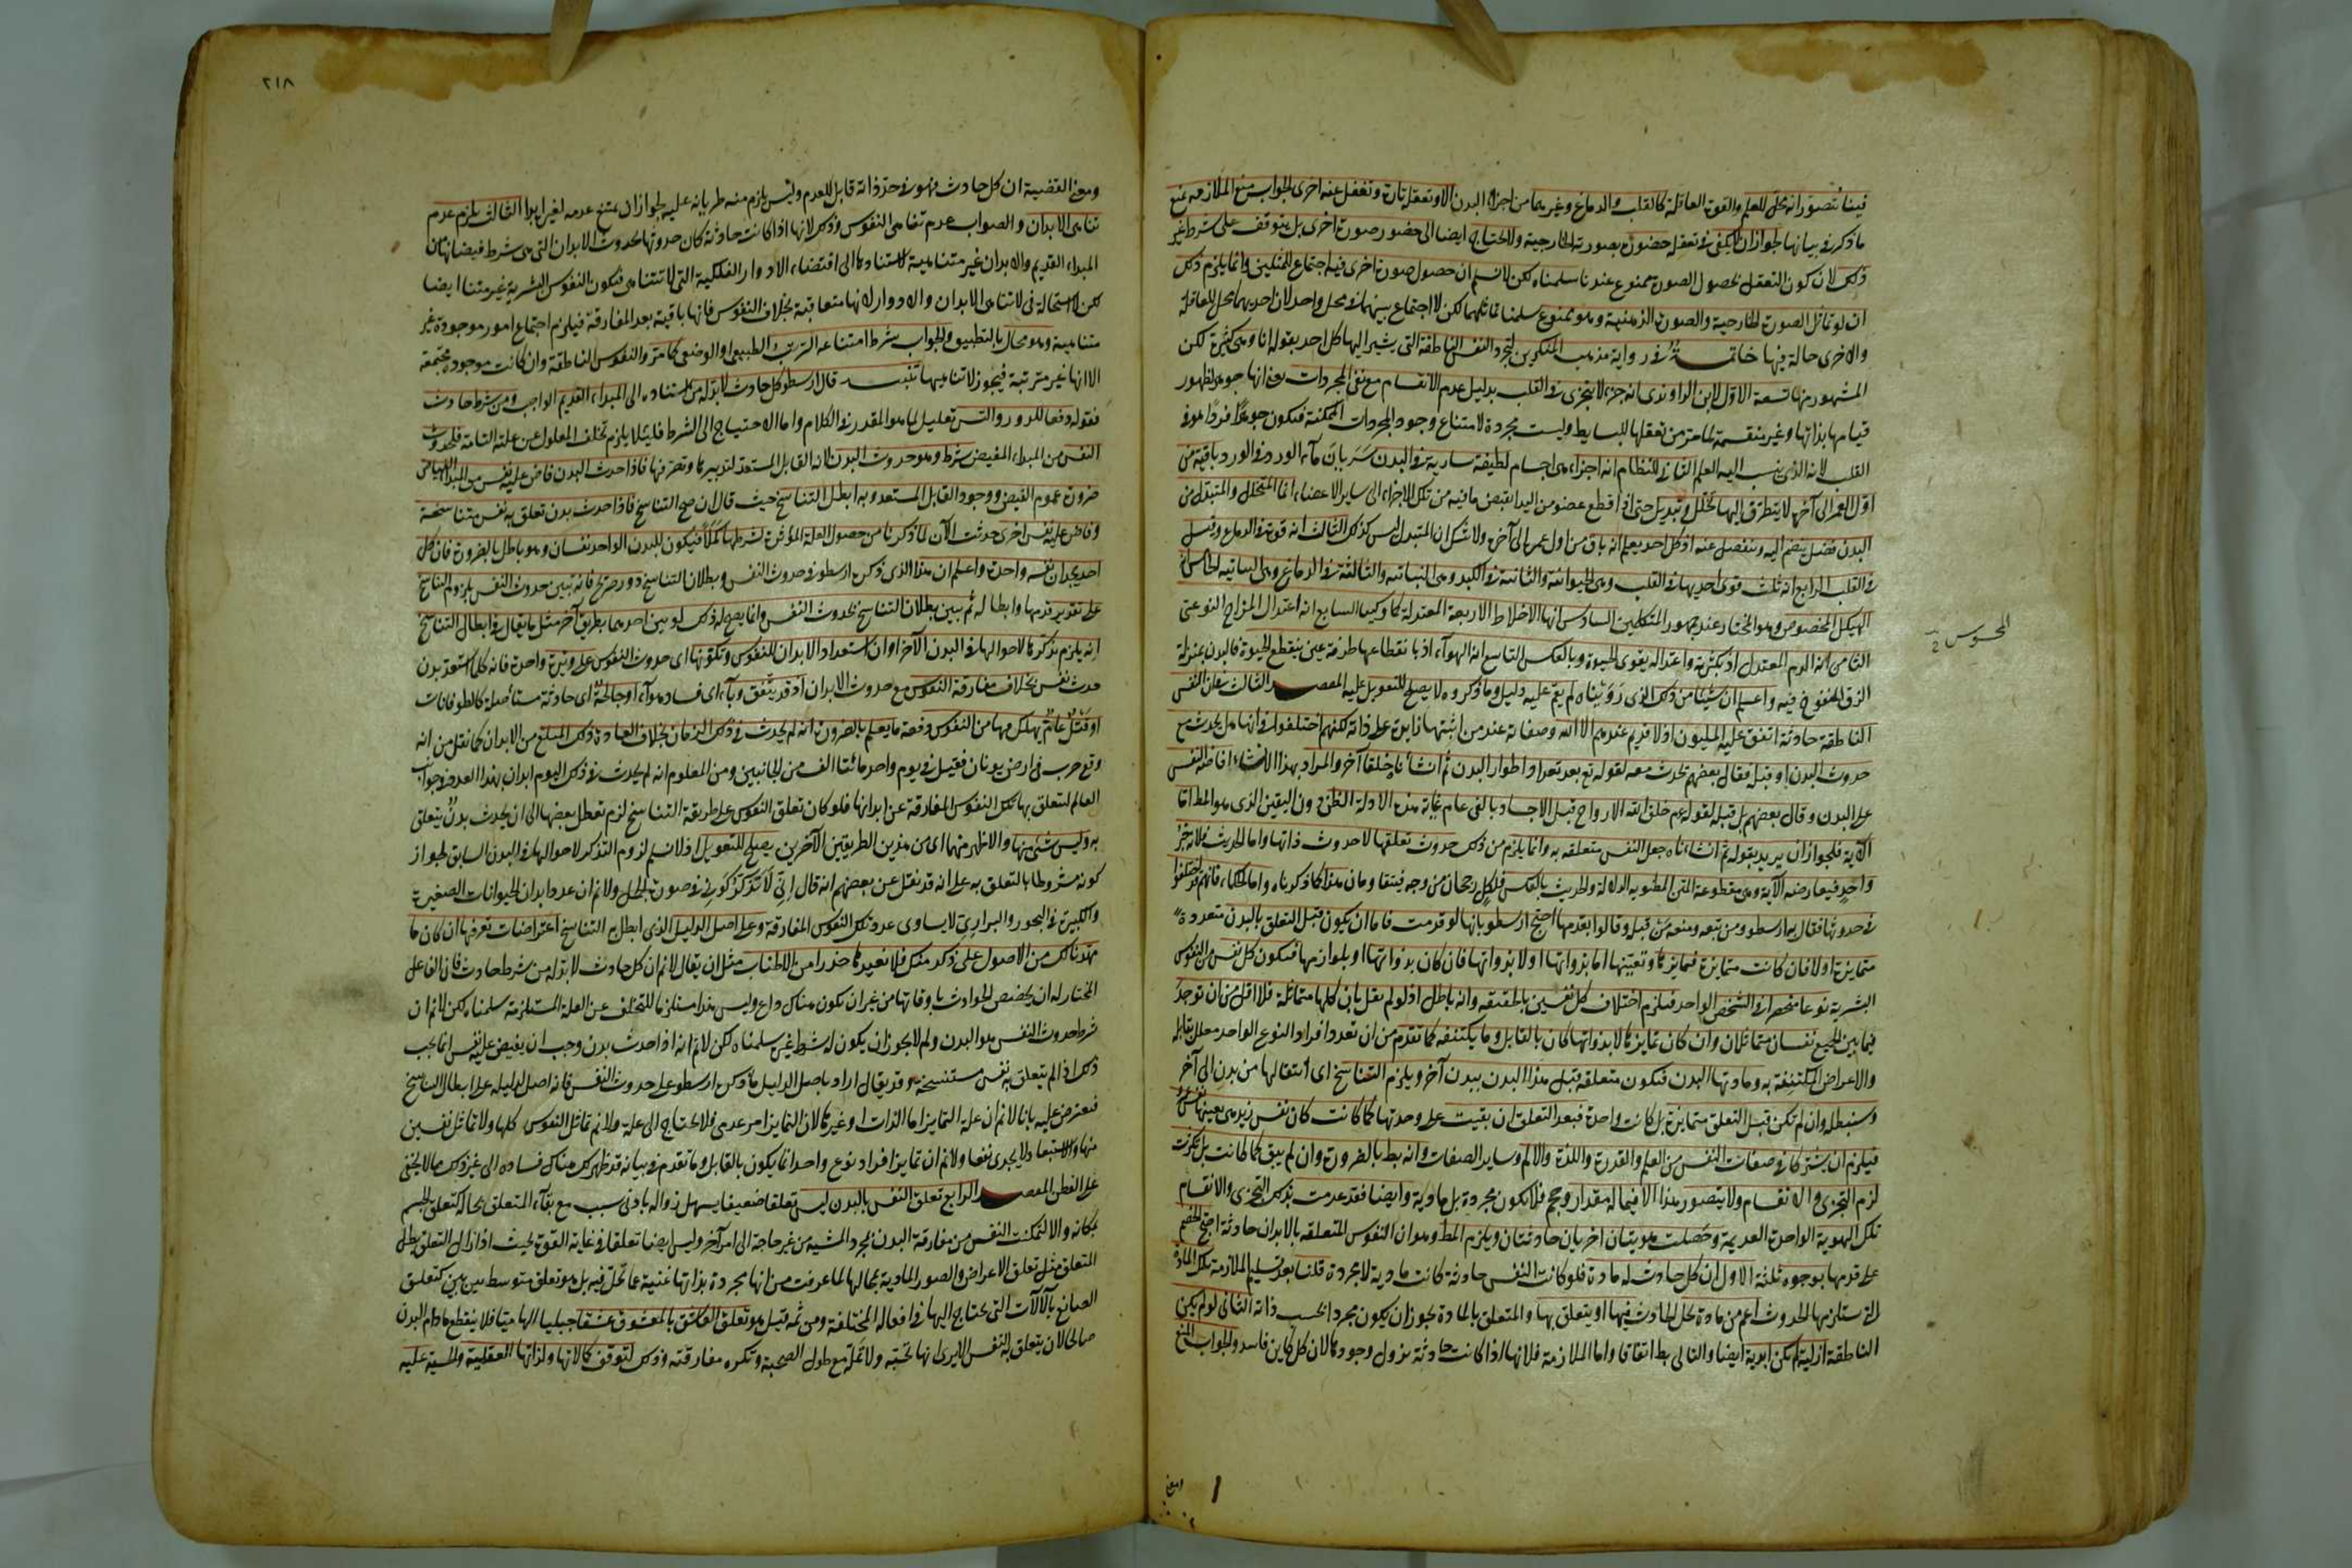 فيما نتصور انه محل للعلم والقوة العاقلة كالقلب والدماغ وغيرهما من اجزاء البدن الا وتعقل تارة وتغفل عنه اخرى الجواب منع الملازمة بمنع
ما ذكر في بيانها لجواز ان لا يكفي في تعقل حضوره بصورته الخارجية ولا يحتاج ايضا الى حضور صورة اخرى بل يتوقف على شرط غير
ذلك لان كون التعقل بحصول الصورة ممنوع عندنا سلمناه لكن لا نسلم ان حصول صورة اخرى فيه اجتماع للمثلين وانما يلزم ذلك
ان لو تماثل الصورة الخارجية والصورة الذهنية وهو ممنوع سلمنا تماثلهما لكن لا اجتماع بينهما في محل واحد لان احديهما محل للعاقلة
والاخرى حالة فيها خاتمة في رواية مذهب المنكرين لتجرد النفس الناطقة التي يشير اليها كل احد بقوله انا وهي كثيرة لكن
المشهور منها تسعة الاول لابن الراوندي انه جزء لا يتجزى في القلب بدليل عدم الانقسام مع نفي المجردات يعني انها جوهر لظهور
قيامها بذاتها وغير منقسمة لما مر من تعقلها للبسايط وليست مجردة لامتناع وجود المجردات الممكنة فيكون جوهرا فردا هو في
القلب لانه الذي ينسب اليه العلم الثاني للنظام انه اجزاء هي اجسام لطيفة سارية في البدن سريان ماء الورد في الورد باقية من
اول العمر الى آخره لا يتطرق اليها تخلل وتبدل حتى اذا قطع عضو من البدن انقبض ما فيه من تلك الاجزاء الى ساير الاعضاء انما المتخلل والمتبدل من
البدن فضل ينضم اليه وينفصل عنه اذ كل احد يعلم انه باق من اول عمره الى آخره ولا شك ان المتبدل ليس كذلك الثالث انه قوة في الدماغ وقيل
في القلب الرابع انه ثلث قوى احديها في القلب وهي الحيوانية والثانية في الكبد وهي النباتية والثالثة في الدماغ وهي النفسانية الخامس انه
الهيكل المخصوص وهو المختار عند جمهور المتكلمين السادس انها الاخلاط الاربعة المعتدلة كما وكيفا السابع انه اعتدال المزاج النوعي
المحسوس
الثامن انه الدم المعتدل اذ بكثرته واعتداله يقوى الحيوة وبالعكس التاسع انه الهواء اذ بانقطاعها طرفة عين ينقطع الحيوة فالبدن بمنزلة
الزق المنفوخ فيه واعلم ان شيئا من ذلك الذي رويناه لم يقم عليه دليل وما ذكروه لا يصلح للتعويل عليه المقصد الثالث في ان النفس
الناطقة حادثة اتفق عليه المليون اذ لا قديم عندهم الا الله وصفاته عند من اثبتها زايدة على ذاته لكنهم اختلفوا في انها هل يحدث مع
حدوث البدن او قبله فقال بعضهم يحدث معه لقوله تع بعد تعداد اطوار البدن ثم انشأناه خلقا آخر والمراد بهذا الانشاء افاضة النفس
على البدن وقال بعضهم بل قبله لقوله عم خلق الله الارواح قبل الاجساد بالفي عام غاية هذه الادلة الظن دون اليقين الذي هو المط اما
الآية فلجواز ان يريد بقوله ثم انشأناه جعل النفس متعلقة به وانما يلزم من ذلك حدوث تعلقها لا حدوث ذاتها واما الحديث فلانه خبر
واحد فيعارضه الآية وهي مقطوعة المتن المظنونة الدلالة والحديث بالعكس فلكل رجحان من وجه فيتقاومان هذا كما ذكرناه واما الحكماء فانهم قد اختلفوا
في حدوثها فقال به ارسطو ومن تبعه ومنعه من قبله وقالوا بقدمها احتج ارسطو بانها لو قدمت فاما ان يكون قبل التعلق بالبدن متعددة
متمايزة او لا فان كانت متمايزة فتمايزها وتعينها اما بذواتها او لا بذواتها فان كان بذواتها او بلوازمها فتكون كل نفس من النفوس
البشرية نوعا منحصرا في الشخص الواحد فيلزم اختلاف كل نفسين بالحقيقة وانه باطل اذ لو لم نقل بان كلها متماثلة فلا اقل من ان توجد
فيما بين الجميع نفسان متماثلان وان كان تمايزها لا بذواتها كان بالقابل وما يكتنفه كما تقدم من ان تعدد افراد النوع الواحد معلل بقابله
والاعراض المكتنفة به ومادتها البدن فتكون متعلقة قبل هذا البدن ببدن آخر ويلزم التناسخ اي انتقالها من بدن الى آخر
وسنبطله وان لم تكن قبل التعلق متمايزة بل كانت واحدة فبعد التعلق ان بقيت على وحدتها كما كانت كان نفس زيد هي بعينها نفس عمرو
فيلزم ان يشتركا في صفات النفس من العلم والقدرة واللذة والالم وساير الصفات وانه بط بالضرورة وان لم يبق كما كانت بل تكثرت
لزم التجزي والانقسام ولا يتصور هذا الا فيما له مقدار وحجم فلا يكون مجردة بل مادية وايضا فقد عدمت بذلك التجزي والانقسام
تلك الهوية الواحدة القديمة وحصلت هويتان اخريان حادثتان ويلزم المط وهو ان النفوس المتعلقة بالابدان حادثة احتج الخصم
على قدمها بوجوه ثلثة الاول ان كل حادث له مادة فلو كانت النفس حادثة كانت مادية لا مجردة قلنا بعد تسليم الملازمة تلك المادة
التي ستلزمها الحدوث اعم من مادة يحل الحادث فيها او يتعلق بها والمتعلق بالمادة يجوز ان يكون مجردا بحسب ذاته الثاني لو لم يكن
الناطقة ازلية لم تكن ابدية ايضا والتالي بط اتفاقا واما الملازمة فلانها اذا كانت حادثة يزول وجودها لان كل كاين فاسد والجواب المنع
ومعنى
٢١٨
ومعنى القضية ان كل حادث فهو في حد ذاته قابل للعدم وليس يلزم منه طريانه عليه لجواز ان يمتنع عدمه لغيره ابدا الثالث يلزم عدم
تناهي الابدان والصواب عدم تناهي النفوس وذلك لانها اذا كانت حادثة كان حدوثها بحدوث الابدان التي هي شرط فيضانها من
المبداء القديم والابدان غير متناهية لاستنادها الى اقتضاء الادوار الفلكية التي لا تتناهى فتكون النفوس البشرية غير متناهية ايضا
لكن لا استحالة في لا تناهي الابدان والادوار لانها متعاقبة بخلاف النفوس فانها باقية بعد المفارقة فيلزم اجتماع امور موجودة غير
متناهية وهو محال بالتطبيق والجواب شرط امتناعه الترتب الطبيعي او الوضعي كما مر والنفوس الناطقة وان كانت موجودة مجتمعة
الا انها غير مترتبة فيجوز لا تناهيها تنبيه قال ارسطو كل حادث لا بد له من استناده الى المبداء القديم الواجب ومن شرط حادث
فقوله دفعا للدور والتس تعليل لما هو المقدر في الكلام واما الاحتياج الى الشرط فلئلا يلزم تخلف المعلول عن علته التامة فلحدوث
النفس من المبداء المفيض شرط وهو حدوث البدن لانه القابل المستعد لتدبيرها وتصرفها فاذا حدث البدن فاض عليه نفس من المبداء الفياض
ضرورة عموم الفيض ووجود القابل المستعد وبه ابطل التناسخ حيث قال ان صح التناسخ فاذا حدث بدن تعلق به نفس متناسخة
وفاض عليه نفس اخرى حدثت الآن لما ذكرنا من حصول العلة المؤثرة بشرطها كملا فيكون للبدن الواحد نفسان وهو باطل بالضرورة فان كل
احد يجد ان نفسه واحدة واعلم ان هذا الذي ذكره ارسطو في حدوث النفس وبطلان التناسخ دور صريح فانه تبين حدوث النفس بلزوم التناسخ
على تقدير قدمها وابطاله ثم بين بطلان التناسخ بحدوث النفس وانما يصح له ذلك لو بين احدهما بطريق آخر مثل ما يقال في ابطال التناسخ
انه يلزم تذكرها لاحوالها في البدن الآخر او ان استعداد الابدان للنفوس وتكونها اي حدوث النفوس على وتيرة واحدة فانه كلما استعد بدن
حدث نفس بخلاف مفارقة النفوس مع حدوث الابدان اذ قد يتفق وباء اي فساد هواء او جائحة اي حادثة مستأصلة كالطوفانات
او قتل عام يهلك بها من النفوس دفعة ما يعلم بالضرورة انه لم يحدث في ذلك الزمان بخلاف العادة ذلك المبلغ من الابدان كما نقل من انه
وقع حرب في ارض يونان فقتل في يوم واحد مائتا الف من الجانبين ومن المعلوم انه لم يحدث في ذلك اليوم ابدان بهذا العدد في جوانب
العالم لتتعلق بها تلك النفوس المفارقة عن ابدانها فلو كان تعلق النفوس على طريقة التناسخ لزم تعطل بعضها الى ان يحدث بدن يتعلق
به وليس شيء منها والاظهر منهما اي من هذين الطريقين الآخرين يصلح للتعويل اذ لا نسلم لزوم التذكر لاحوالها في البدن السابق لجواز
كونه مشروطا بالتعلق به على انه قد نقل عن بعضهم انه قال اني لاتذكر كوني في صورة الجمل ولا نم ان عدد ابدان الحيوانات الصغيرة
والكبيرة في البحور والبراري لا يساوي عدد تلك النفوس المفارقة وعلى اصل الدليل الذي ابطل به التناسخ اعتراضات تعرفها ان كان ما
مهدناك من الاصول على ذكر منك فلا نعيدها حذرا من الاطناب مثل ان يقال لا نم ان كل حادث لا بد له من شرط حادث فان الفاعل
المختار له ان يخصص الحوادث باوقاتها من غير ان يكون هناك داع وليس هذا مستلزما للتخلف عن العلة المستلزمة سلمناه لكن لا نم ان
شرط حدوث النفس هو البدن ولم لا يجوز ان يكون له شرط غيره سلمناه لكن لا نم انه اذا حدث بدن وجب ان يفيض عليه نفس انما يجب
ذلك اذا لم يتعلق به نفس مستنسخة وقد يقال اراد باصل الدليل ما ذكره ارسطو على حدوث النفس فانه اصل لدليله على ابطال التناسخ
فيعترض عليه بانا لا نم ان علة التمايز اما الذات او غيرها لان التمايز امر عدمي فلا يحتاج الى علة ولا نم تماثل النفوس كلها ولا تماثل نفسين
منها والاستبعاد لا يجدي نفعا ولا نم ان تمايز افراد نوع واحد انما يكون بالقابل وما تقدم في بيانه قد ظهر لك هناك فساده الى غير ذلك مما لا يخفى
على الفطن المقصد الرابع تعلق النفس بالبدن ليس تعلقا ضعيفا يسهل زواله بادنى سبب مع بقاء المتعلق بحاله كتعلق الجسم
بمكانه والا لتمكنت النفس من مفارقة البدن بمجرد المشية من غير حاجة الى امر آخر وليس ايضا تعلقا في غاية القوة بحيث اذا زال التعلق بطل
المتعلق مثل تعلق الاعراض والصور المادية بمحالها لما عرفت من انها مجردة بذاتها غنية عما تحل فيه بل هو تعلق متوسط بين بين كتعلق
الصانع بالآلات التي يحتاج اليها في افعاله المختلفة ومن ثمه قيل هو تعلق العاشق بالمعشوق عشقا جبليا الهاميا فلا ينقطع ما دام البدن
صالحا لان يتعلق به النفس الا يرى انها تحبه ولا تمله مع طول الصحبة وتكره مفارقته وذلك لتوقف كمالاتها ولذاتها العقلية والحسية عليه